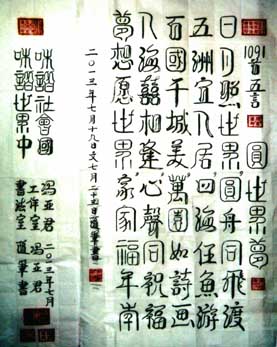 1091首五言 圓世界夢
日月照世界圓舟同飛渡
五洲宜人居四海任魚游
百國千城美萬園如詩画
人海囍相逢心聲同祝福
夢想愿世界家家福年
二〇一三年七月十九日文七月二十五日道軍書
咊諧社會國
咊諧世界中
冯亚君 二〇一三年七月
工作室 冯亚君
書法室 道軍書